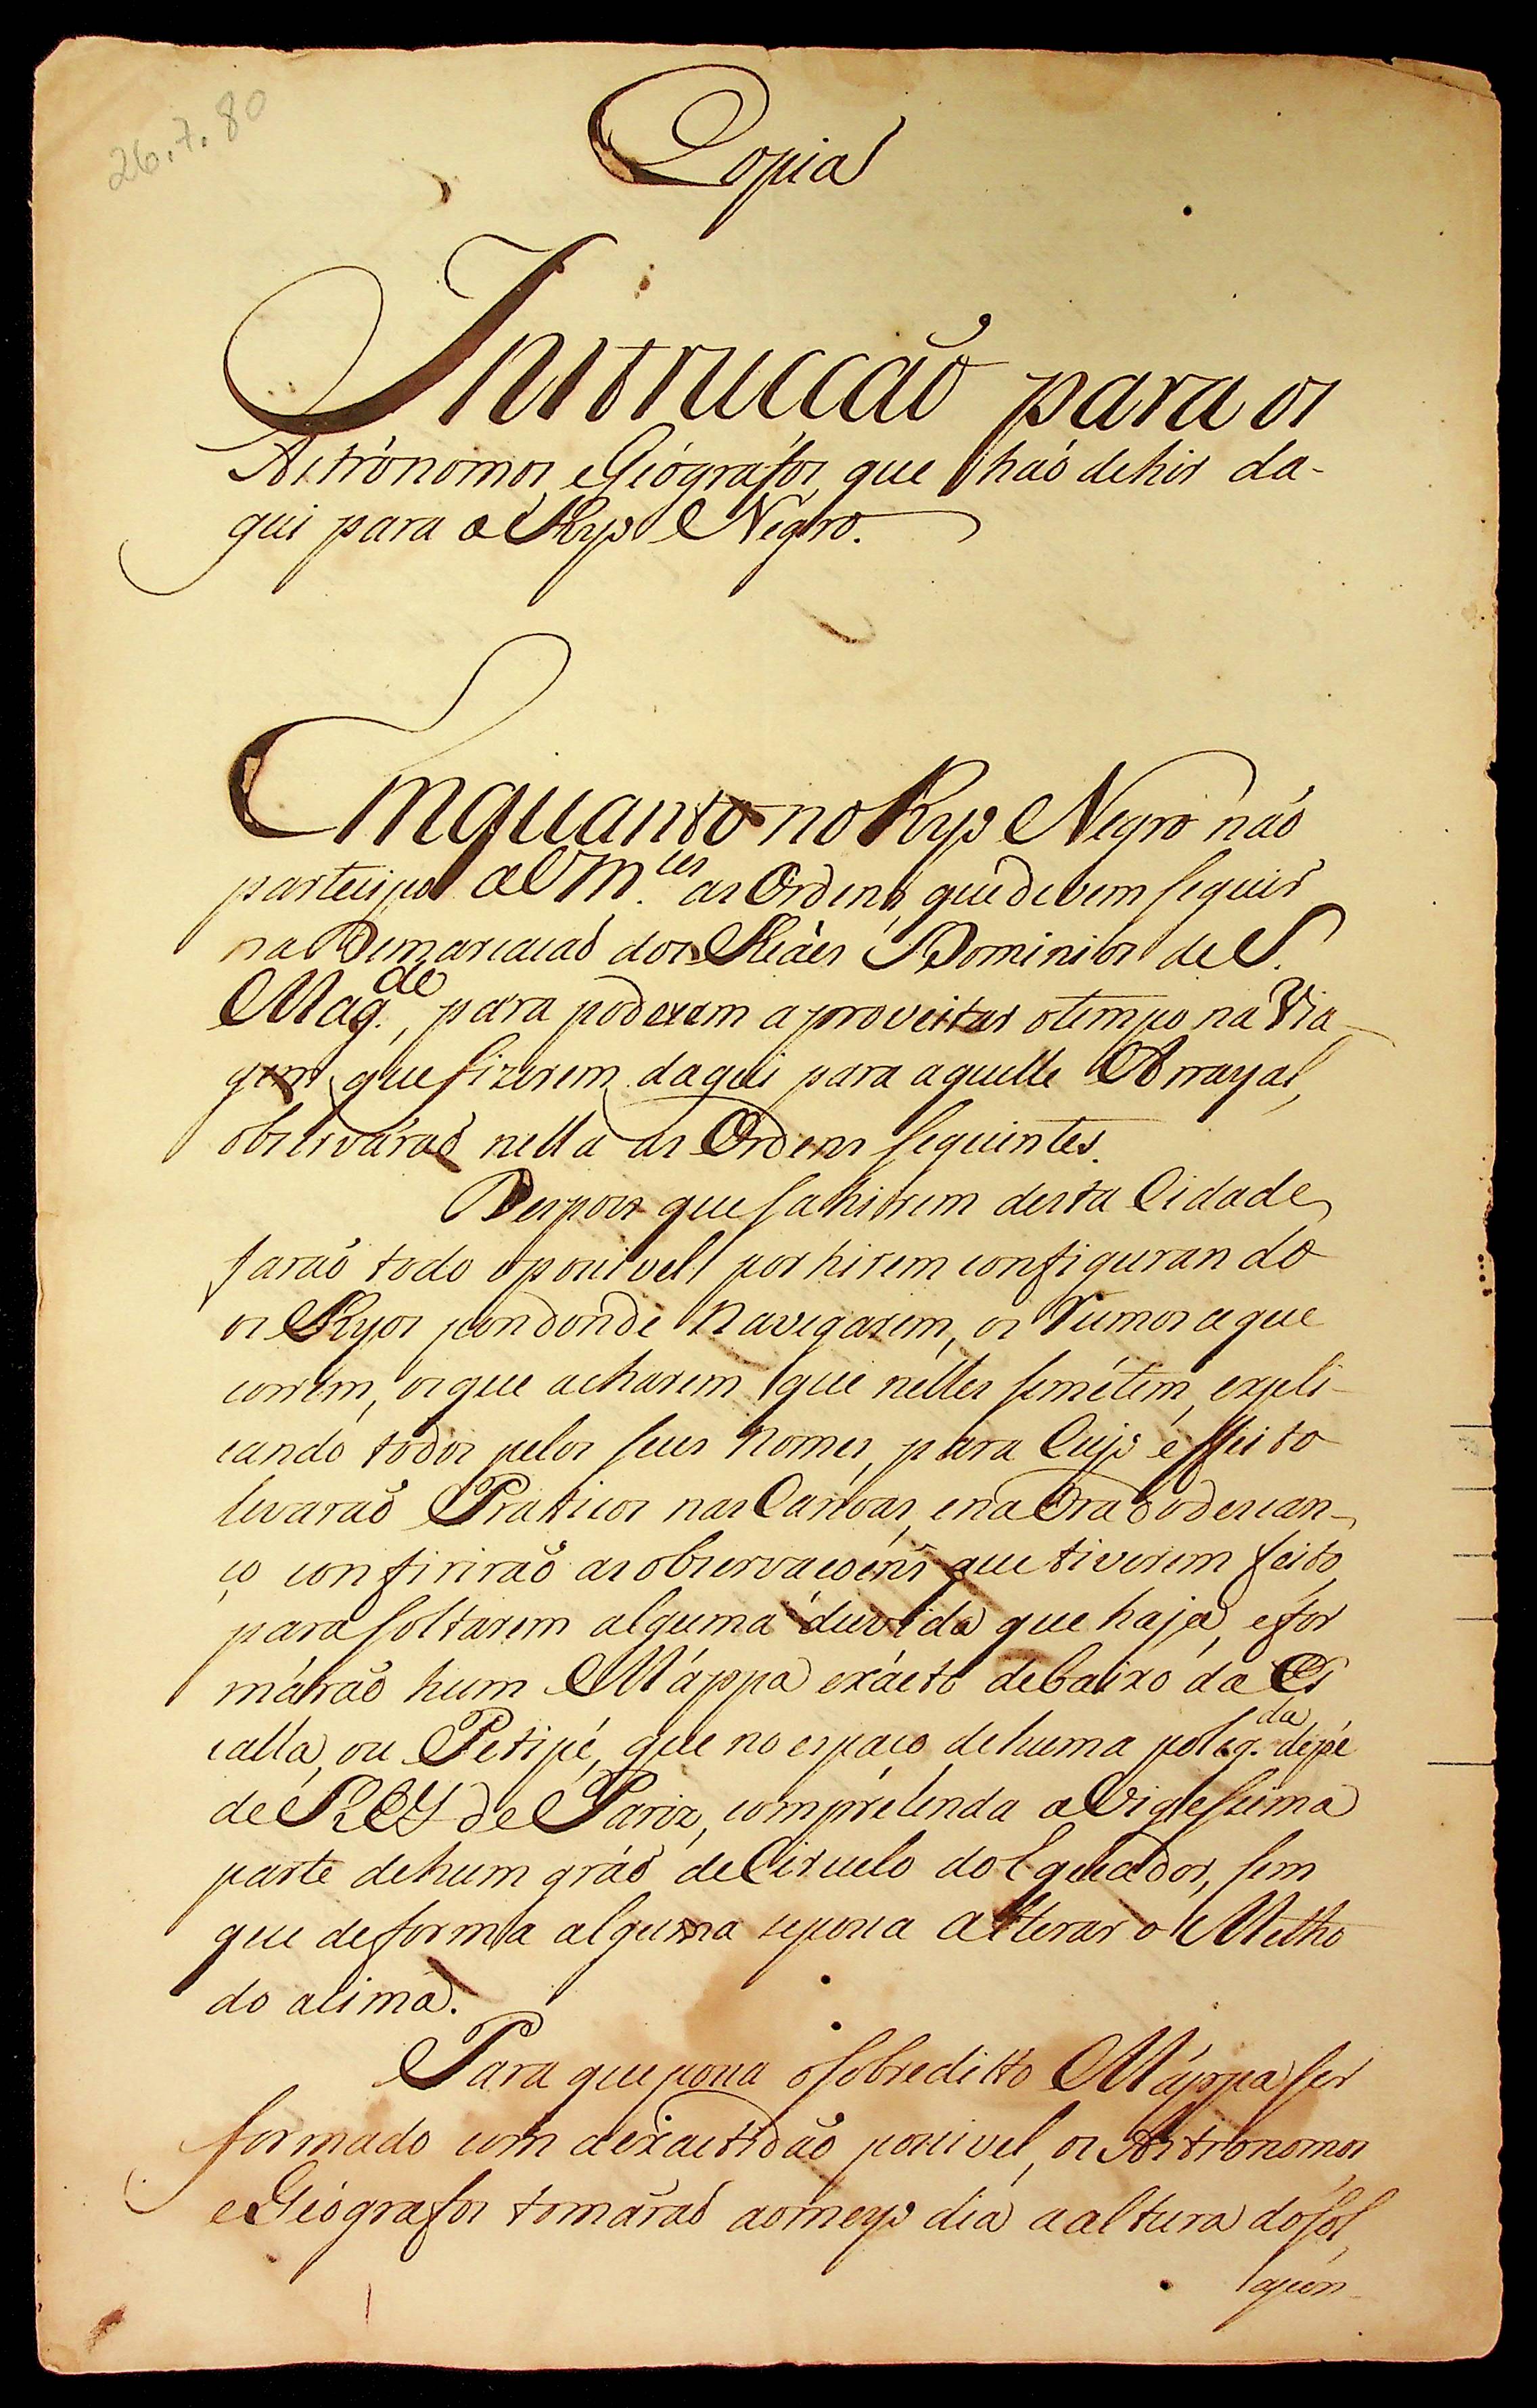 26.7.80
Copia
Instrucçaõ para os
Astrónomos, e Géógrafos, que haõ de hir da-
qui para o Ryo Negro.
Emquanto no Ryo Negro naõ
partecipo a V M.ces as Ordens, que devem seguir
na Demarcaçaõ dos Reáes Dominios de S.
Mag.de, para poderem aproveitar o tempo na Via
gem, que fizerem daqui para aquelle Arrayal,
observáraõ nella as Ordens seguintes.
Despois que sahirem desta Cidade,
faraõ todo o possivel por hirem configurando
os Ryos por donde Navegarem, os Rumos a que
correm, os que acharem que nélles se métem, expli-
cando todos pelos seus Nomes, para Cujo éffeito
levaraõ Praticos nas Canóas, e na Ora do descan-
ço confiriraõ as observaçoéns que tiverem feito,
para soltarem alguma duvida que haja, e for
máraõ hum Máppa exácto debaixo da Es
calla, ou Petipé, que no espaço de huma poleg.da de pé
de REY de Pariz, comprehenda a Vigessima
parte de hum gráo de Circulo do Equador, sem
que de forma alguma se possa alterar o Metho
do acima.
Para que possa o sobreditto Máppa ser
formado com a exactidaõ possivel, os Astronomos
e Géógrafos tomáraõ ao meyo dia a altura do sol,
apon-